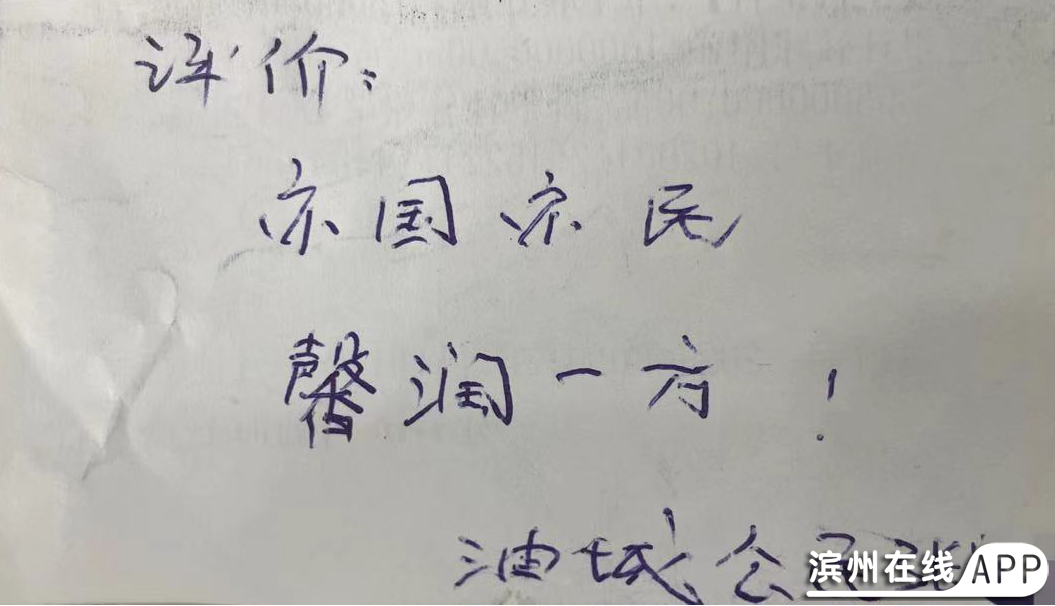 评价：
亦国亦民
馨润一方！
油城公民
滨州在线APP